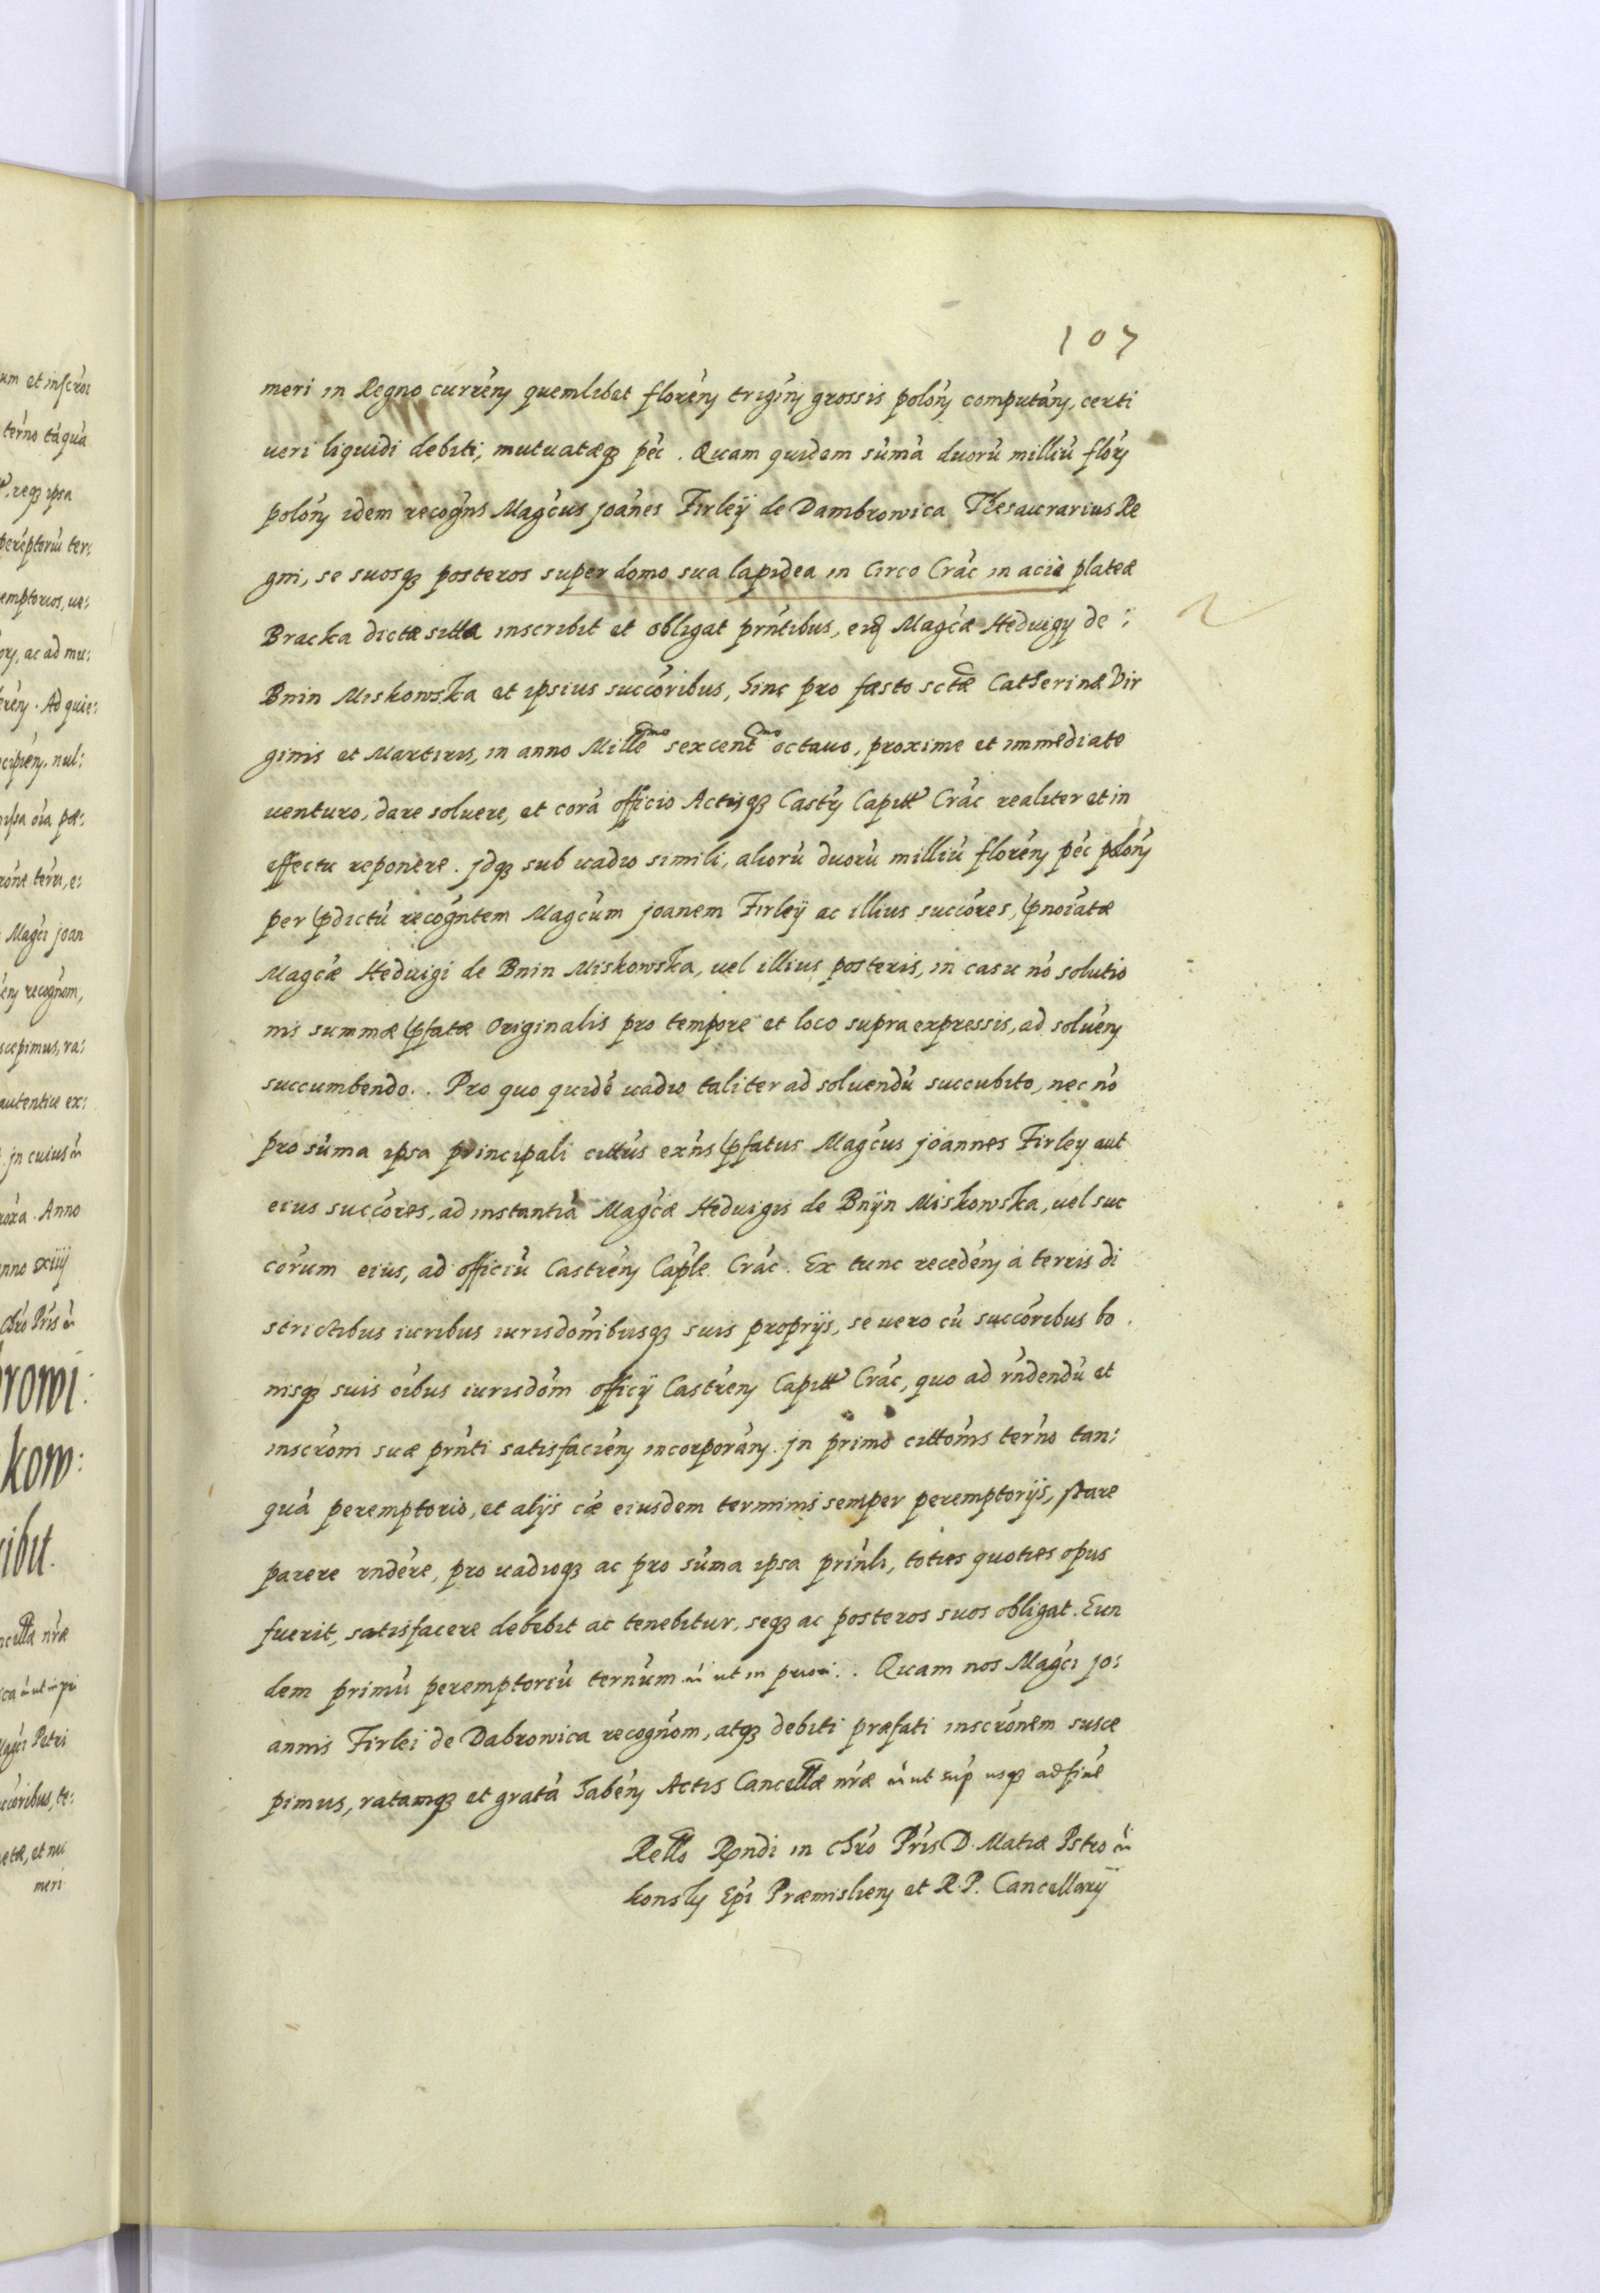 107
meri in Regno currén quemlibet florén trigin grossis polón compután, certi
veri liquidi debiti, mutuatæq péc. Quam quidem sum̃a duorũ milliũ flor
polon idem recogns Magcus Joannes Firleÿ de Dambrowica Thesaurarius Re
gni, se suosq posteros super domo sua lapidea in Circo Crac in acie plateæ
Bracka dictæ sitta inscribit et obligat prntibus, eidq Magcæ Hedvigy de :
Bnin Miskowska et ipsius succoribus, hinc pro fæsto sctæ Catherinæ Vir
ginis et Martiris, in anno Millemo sexcentmo octavo, proxime et immediate
venturo, dare solvere, et corã officio Actisq Castr Capitt Crac realiter et in
effectu reponere. Jdq sub vadio simili, aliorũ duorũ milliũ floren péc polon
per pdictũ recogntem Magcum Joanem Firleÿ ac illius succores, pnoiatæ
Magcæ Hedvigi de Bnin Miskowska, vel illius posteris, in casu nõ solutio
nis summæ pfatæ Originalis pro tempore et loco supra expressis, ad solven
succumbendo. . Pro quo quidẽ vadio taliter ad solvendũ succubito, nec nõ
pro sũma ipsa principali cittus exns pfatus Magcus Joannes Firley aut
eius succores, ad instantiã Magcæ Hedvigis de Bnÿn Miskowska, vel suc
corum eius, ad officiũ Castren Caple Crac. Ex tunc receden à terris di
strictibus iuribus iurisdonibusq suis proprijs, se vero cũ succoribus bo
nisq suis oibus iurisdom officij Castren Capitt Crac, quo ad rndendũ et
inscrom suæ prnti satisfacien incorporan. Jn primo cittonis terno tan:
quã peremptorio, et alijs cæ eiusdem terminis semper peremptorijs, stare
parere rndere, pro vadioq ac pro sũma ipsa prinli, toties quoties opus
fuerit, satisfacere debebit ac tenebitur, seq ac posteros suos obligat. Eun
dem primũ peremptoriũ ternum ut in priori. . Quam nos Magci Jo:
annis Firlei de Dabrowica recognom, atq debiti præfati inscronem susce
pimus, ratamq et gratã haben Actis Cancellæ nræ ut sup usq ad finẽ
Rello Rndi in Chro Pris D. Matiæ Pstro
konsky Epi Præmislien et R. P. Cancellarij
um et inscroi
terno tãquã
req ipsa
pereptoriũ ter:
emptorios, ve:
ac ad mu:
Ad quie:
nul:
Magci Joan
recognom,
scepimus, ra:
autentice ex:
Jn cuius
Anno
nno
Pris
browi:
kow:
ribit.
nræ
Magci Petri
coribus, te:
etæ, et nu
meri